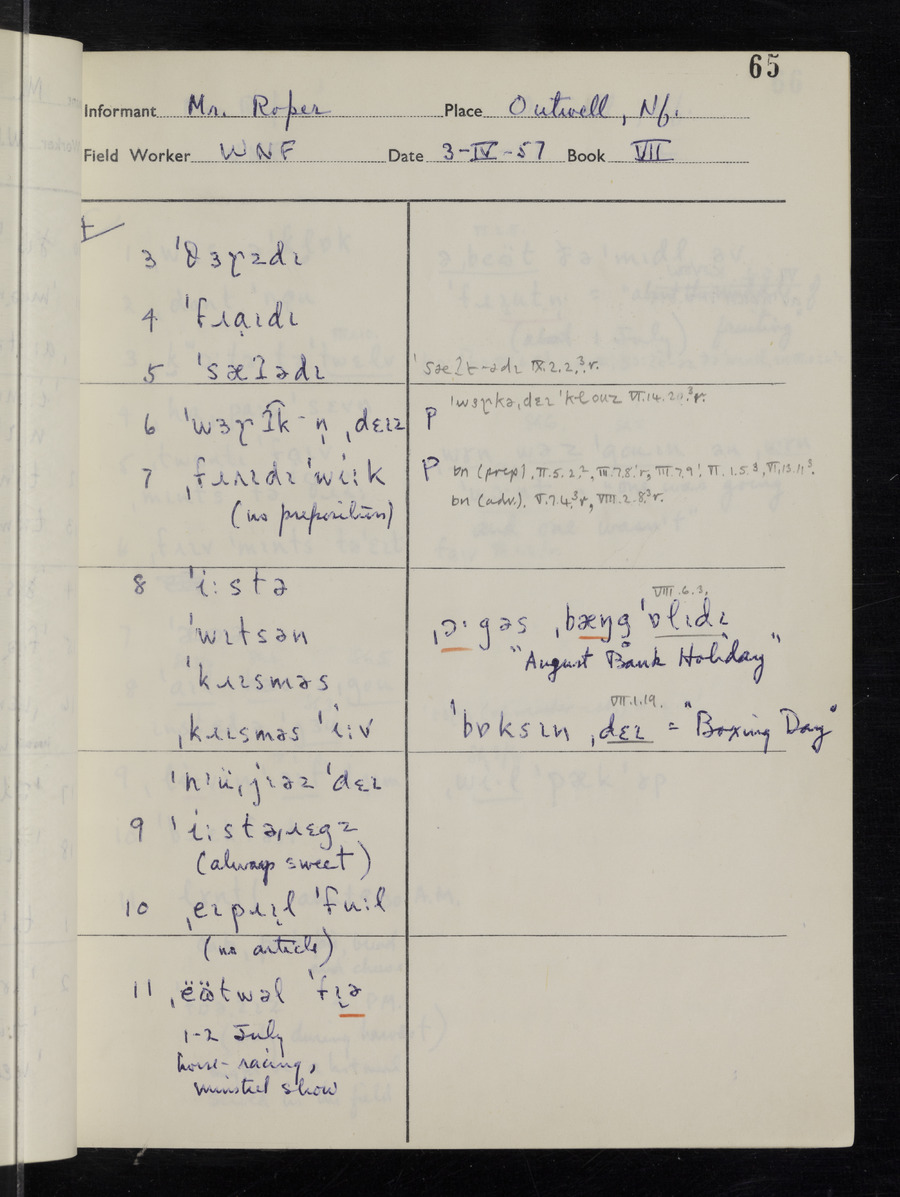 65
Informant Mr. Roper Place Outwell, Nf.
Field Worker WNF Date 3-IV-57 Book VII
3 ˈθɜɤzdɪ
4 ˈfɹaɪdɪ
5 ˈsæʔədɪ ˈsæʔt-ədɪ IX.2.2,³.r.
6 ˈwɜɤʔk-n̩ ˌdɛɪz P ˈwɜɤkəˌdɛɪ ˈklouz VI.14.20.³r.
7 ˌfɹaɪdɪ ˈwiːk P bn (prep), II.5.2.², III.7.8.¹r, III.7.9¹, VI.1.5³, VI.13.11³.
(no preposition) bn (adv). V.7.4.³r, VIII.2.8.³r.
8 ˈiːstə
VIII.6.3.
ˈwɪtsən ˌɔˑgəs ˌbæŋg ˈɒlɪdɪ
"August Bank Holiday"
ˈkɹɪsməs
VII.1.19.
ˌkɹɪsməs ˈiːv ˈbɒksɪn ˌdɛɪ = "Boxing Day"
ˈnɪüˌjɪəz ˈdɛɪ
9 ˈiːstəˌɹɛgz
(always sweet)
10 ˌeɪpɹɪl ˈfuːl
(no article)
11 ˌëötwəl ˈfɪə
1-2 July
horse-racing,
minstrel show